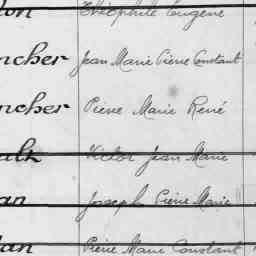 Théophile Eugène
ncher Jean Marie Pierre Constant
ncher Pierre Marie René
Victor Jean Marie
an Joseph Pierre Marie
lan Pierre Marie Constant